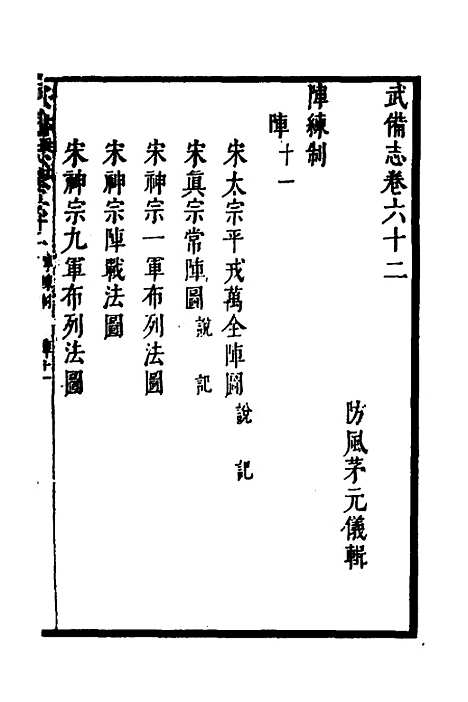 武備志卷六十二
防風茅元儀輯
陣練制
陣十一
宋太宗平戎萬全陣圖 說 記
宋眞宗常陣圖 說 記
宋神宗一軍布列法圖
宋神宗陣戰法圖
宋神宗九軍布列法圖